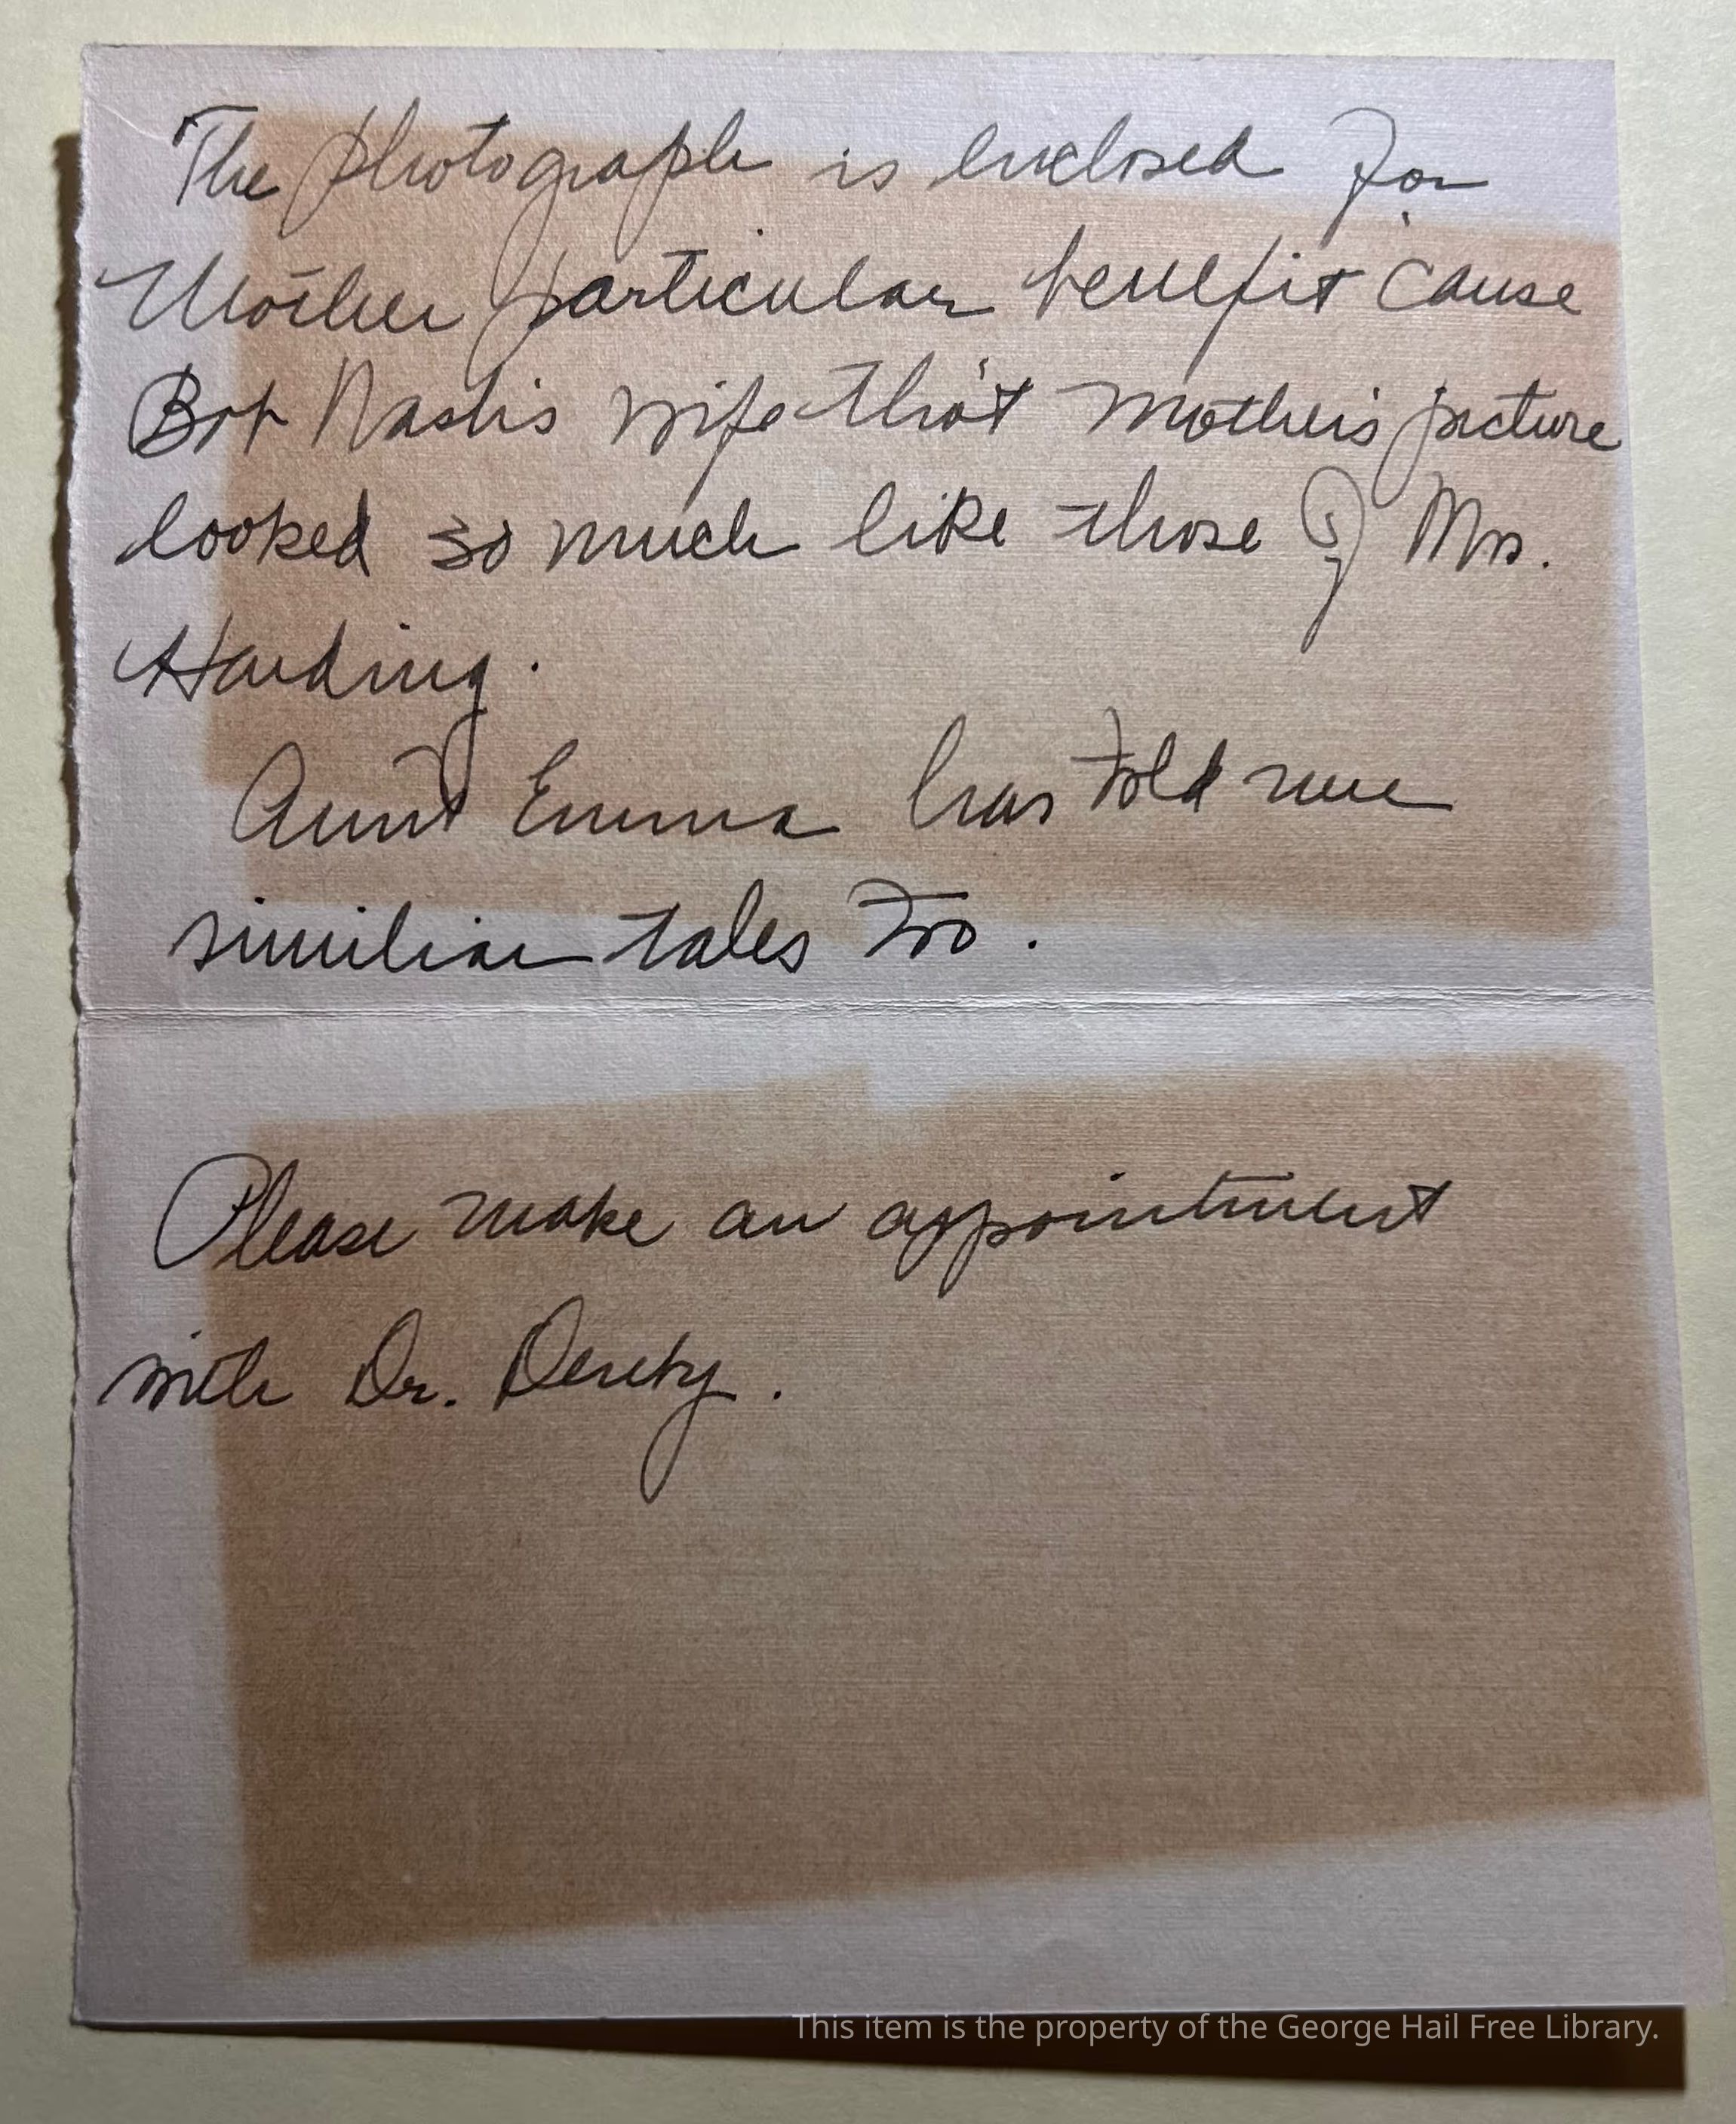 The photograph is enclosed for
Mother particular benefit 'cause
Bob Nash's wife tho't Mother's picture
looked so much like those of Mrs.
Harding.
Aunt Emma has told me
similiar tales too.
Please make an appointment
with Dr.
This item is the property of the George Hail Free Library.